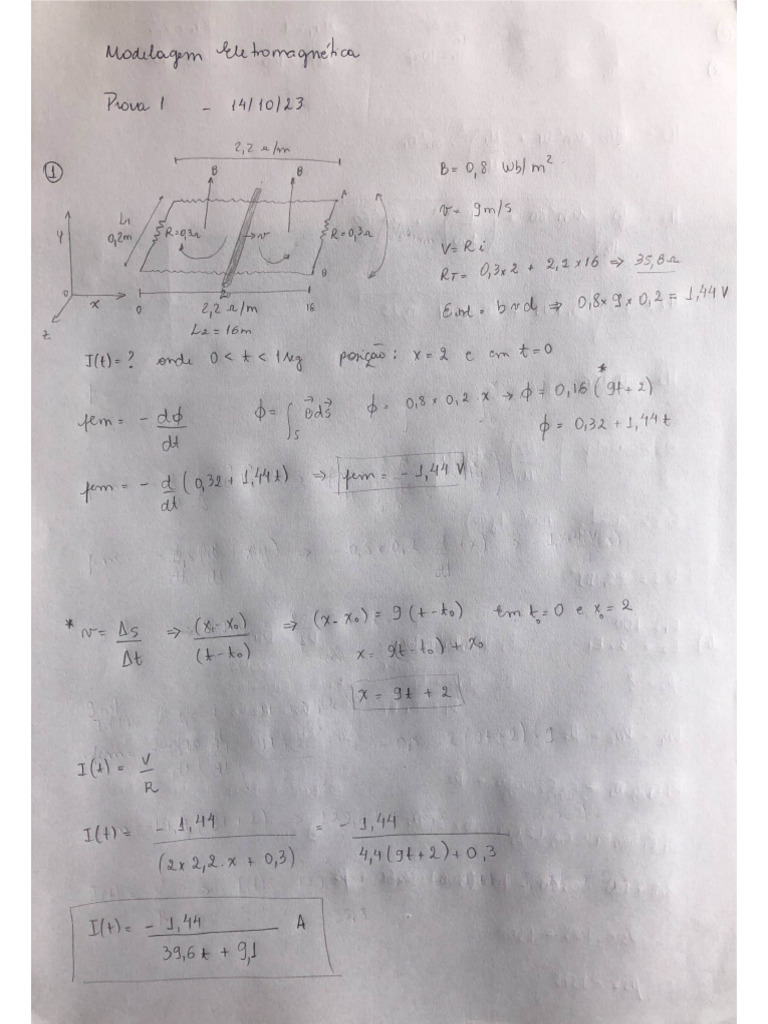 Modelagem Eletromagnética
Prova 1 - 14/10/23
1
2,2 Ω/m
B
B
A
L1
0,2m
R=0,3Ω
→v
R=0,3Ω
B
y
0
x
z
0
2
16
2,2 Ω/m
L2 = 16m
B = 0,8 Wb/m²
v = 9m/s
V = R i
RT = 0,3×2 + 2,2×16 ⇒ 35,8Ω
Eind = b v d ⇒ 0,8×9×0,2 = 1,44 V
I(t) = ? onde 0 < t < 1 seg posição: x = 2 e em t = 0
fem = - dφ/dt φ = ∫s B⃗ds⃗ φ = 0,8 × 0,2 · x → φ = 0,16 (9t + 2)*
φ = 0,32 + 1,44 t
fem = - d/dt (0,32 + 1,44t) ⇒ fem = - 1,44 V
* v = Δs/Δt ⇒ (x - x0)/(t - t0) ⇒ (x - x0) = 9 (t - t0) em t0 = 0 e x0 = 2
x = 9(t - t0) + x0
x = 9t + 2
I(t) = V/R
I(t) = - 1,44/(2 x 2,2 . x + 0,3) = - 1,44/4,4(9t + 2) + 0,3
I(t) = - 1,44/39,6 t + 9,1 A